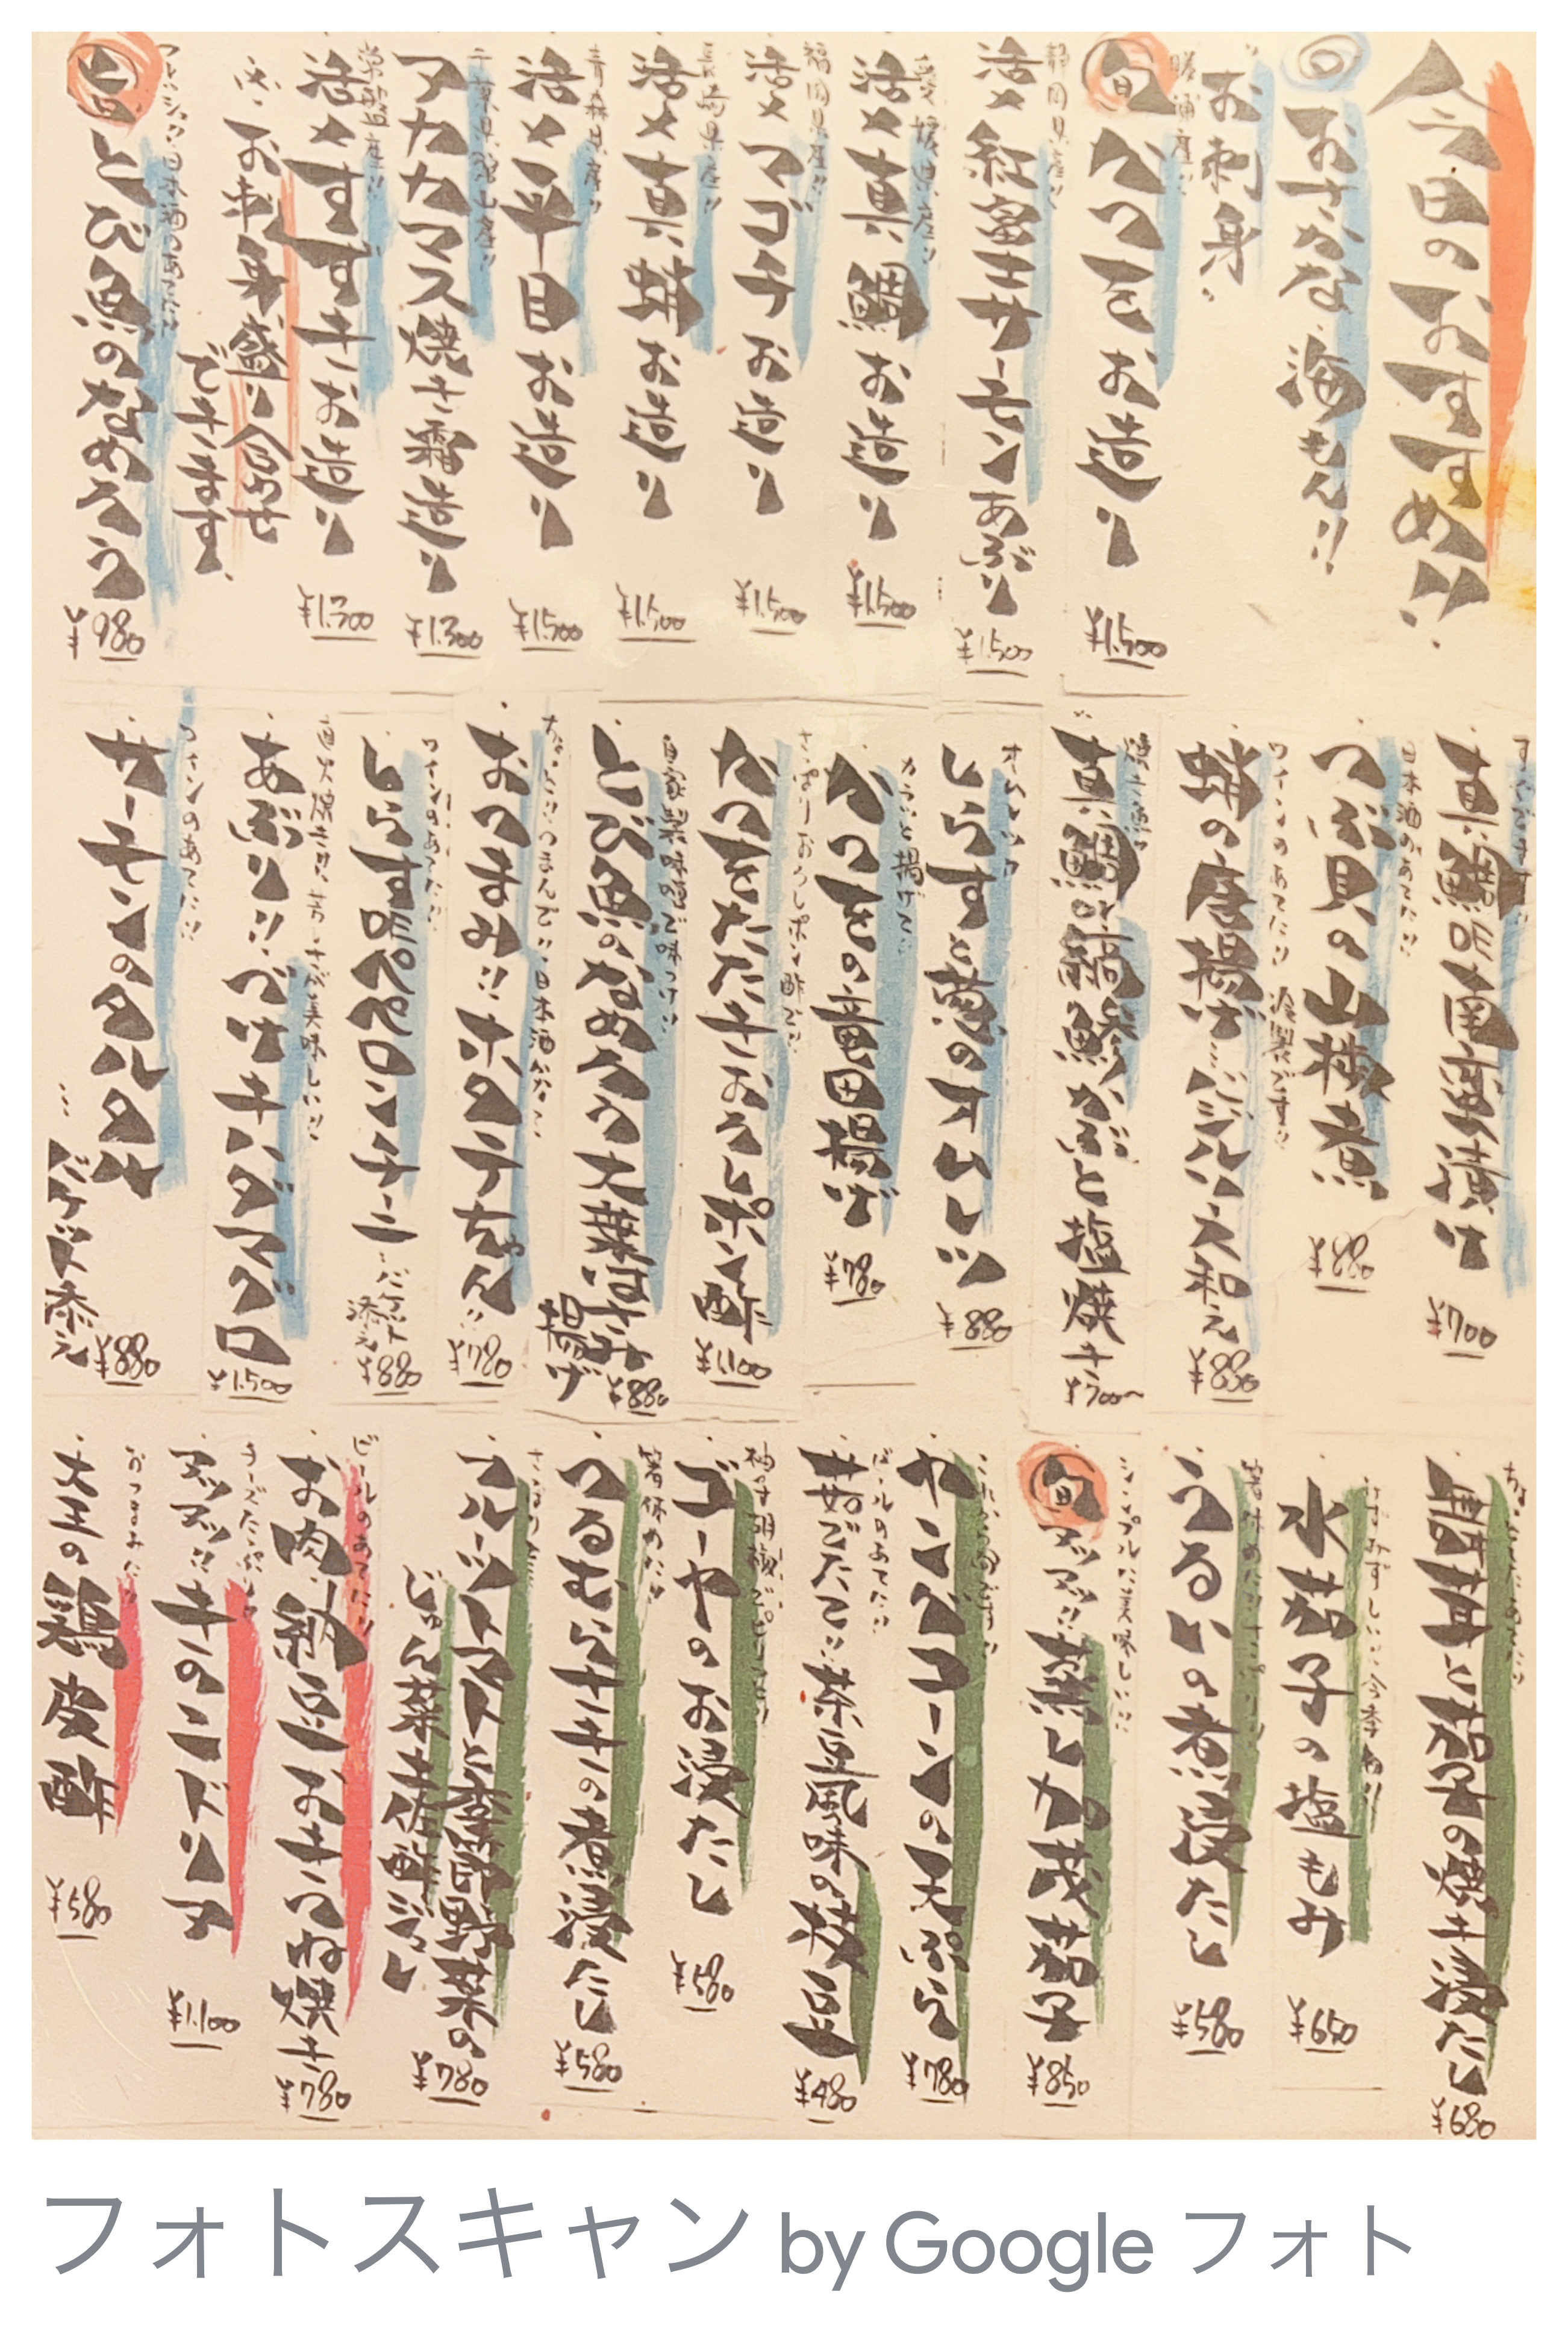 今日のおすすめ!!
おさかな 海もん!!
お刺身
勝浦産!!
旬 かつをお造り ¥1,500
静岡県産!!
活〆紅富士サーモンあぶり ¥1,500
愛媛県産!!
活〆真鯛お造り ¥1,500
福岡県産!!
活〆マゴチお造り ¥1,500
長崎県産!!
活〆真蛸お造り ¥1,500
青森県産!!
活〆平目お造り ¥1,500
千葉県館山産!!
アカカマス焼き霜造り ¥1,300
常磐産!!
活〆すずきお造り ¥1,300
お刺身盛り合わせ
できます
日本酒のあてに
旬 とび魚のなめろう ¥980
真鯛の南蛮漬け ¥700
日本酒のあてに!!
つぶ貝の山椒煮 ¥880
ワインのあてに!!
蛸の唐揚げ…バルバス和え ¥880
真鯛の塩焼き ¥700〜
オムレツ
しらすと葱のオムレツ ¥880
カラッと揚げて!!
かつをの竜田揚げ ¥780
さっぱりおろしポン酢で!!
かつをたたきおろしポン酢 ¥1,100
自家製味噌で味つけ!!
とび魚のなめろう大葉はさみ揚げ ¥880
おつまみ!!ホタテちゃん!! ¥780
ワインのあてに!!
しらすのペペロンチーニ…バゲット添え ¥880
あぶり!!づけキハダマグロ ¥1,500
ワインのあてに!!
サーモンのタルタル
…バゲット添え ¥880
唐芋と茄子の焼き浸たし ¥680
みずみずしい!!今季初!!
水茄子の塩もみ ¥650
箸休めに!!
うるいの煮浸たし ¥580
シンプルに美味しい!!
旬 アツアツ!!蒸し丸茄子 ¥850
ヤングコーンの天ぷら ¥780
ビールのあてに!!
茹でたて!!茶豆風味の枝豆 ¥480
柚子胡椒
ゴーヤのお浸たし ¥580
箸休めに!!
つるむらさきの煮浸たし ¥580
フルーツトマトと季節野菜の
じゅん菜土佐酢ジュレ ¥780
ビールのあてに!!
お肉納豆おきつね焼き ¥780
チーズたっぷり
アツアツ!!きのこドリア ¥1,100
おつまみに
大王の鶏皮酢 ¥580
フォトスキャン by Google フォト